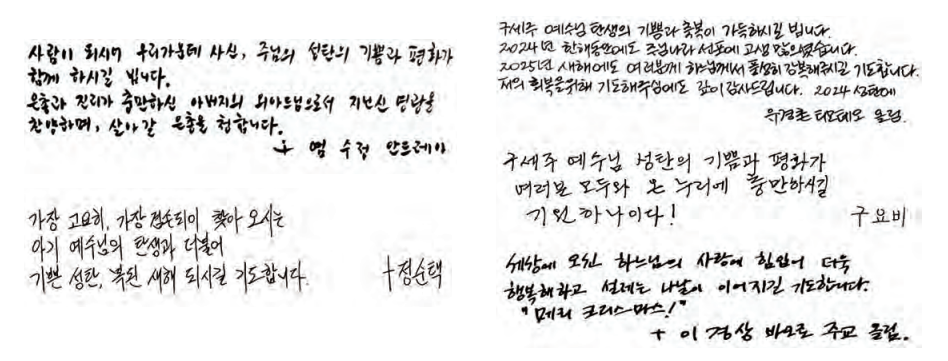 사람이 되시어 우리가운데 사신, 주님의 성탄의 기쁨과 평화가
함께 하시길 빕니다.
은총과 진리가 충만하신 아버지의 외아드님으로서 지니신 영광을
찬양하며, 살아갈 은총을 청합니다.
+ 염 수정 안드레아
가장 고요히, 가장 겸손되이 찾아 오시는
아기 예수님의 탄생과 더불어
기쁜 성탄, 복된 새해 되시길 기도합니다.
+정순택
구세주 예수님 탄생의 기쁨과 축복이 가득하시길 빕니다.
2024년 한해동안에도 주님나라 선포에 고생 많으셨습니다.
2025년 새해에도 여러분께 하느님께서 풍성히 강복해주시길 기도합니다.
저의 회복을위해 기도해주심에도 깊이 감사드립니다. 2024 성탄에
유경촌 티모테오 올림.
구세주 예수님 성탄의 기쁨과 평화가
여러분 모두와 온 누리에 충만하시길
기원하나이다!
구요비
세상에 오신 하느님의 사랑에 힘입어 더욱
행복해하고 설레는 나날이 이어지길 기도합니다.
"메리 크리스마스!"
+ 이 경상 바오로 주교 올림.